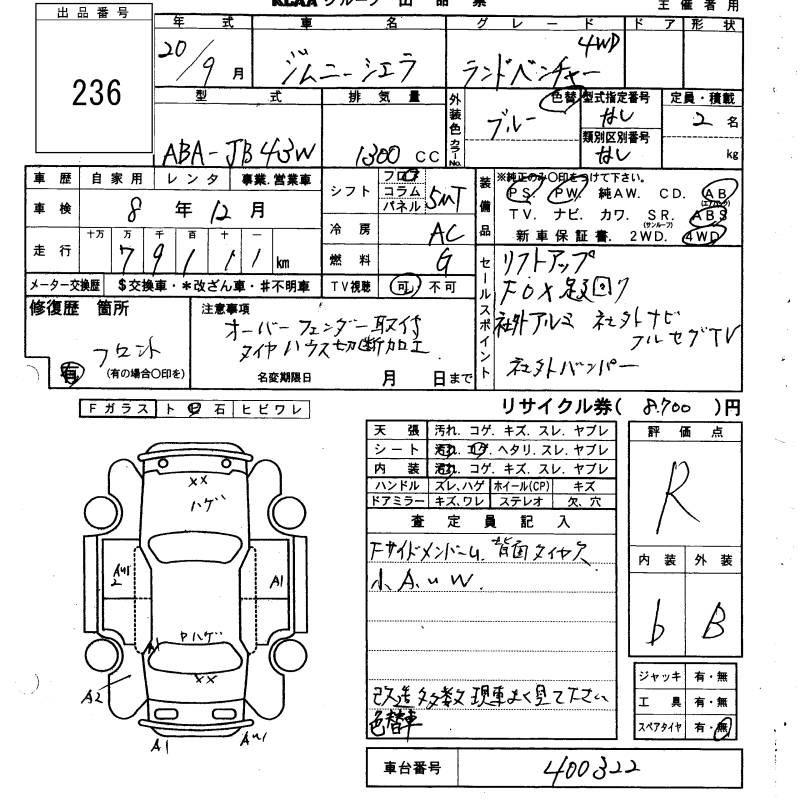 KCAA グループ 出 品 票
主 催 者 用
出 品 番 号
236
年 式
車 名
グ レ ー ド
ド ア
形 状
20/9 月
ジムニーシエラ
ランドベンチャー 4WD
型 式
排 気 量
外装色 カラーNo.
色替
型式指定番号
定員・積載
ABA-JB43W
1300 CC
ブルー
なし
2 名
類別区別番号
なし
kg
車 歴
自 家 用
レ ン タ
事業.営業車
車 検
8 年 12 月
走 行
十万 万 千 百 十 一
7 9 1 1 1 km
メーター交換歴
$交換車・*改ざん車・#不明車
シフト
フロア
コラム
パネル
5MT
冷 房
AC
燃 料
G
TV視聴
可 不 可
装備品
※純正のみ〇印をつけて下さい。
PS. PW. 純AW. CD. AB
(エアバッグ)
TV. ナビ. カワ. SR. ABS
(サンルーフ)
新車保証書. 2WD. 4WD
セールスポイント
リフトアップ
FOX足回り
社外アルミ 社外ナビ
フルセグTV
社外バンパー
修復歴 箇所
フロント
有
(有の場合〇印を)
注意事項
オーバーフェンダー取付
タイヤハウス切断加工
名変期限日 月 日まで
リサイクル券( 8,700 )円
Fガラス ト 飛 石 ヒビワレ
天 張 汚れ. コゲ. キズ. スレ. ヤブレ
シート 汚れ. コゲ. ヘタリ. スレ. ヤブレ
内 装 汚れ. コゲ. キズ. スレ. ヤブレ
ハンドル ズレ、ハゲ ホイール(CP) キズ
ドアミラー キズ、ワレ ステレオ 欠、穴
査 定 員 記 入
Fサイドメンバーム. 背面タイヤ欠
小A.u W.
改造多数 現車よく見て下さい
色替車
評 価 点
R
内 装 外 装
b B
ジャッキ 有・無
工 具 有・無
スペアタイヤ 有・無
車台番号
400322
××
ハゲ
AU1
2
A1
ヤハゲ
A1
××
A2
A1
AU1